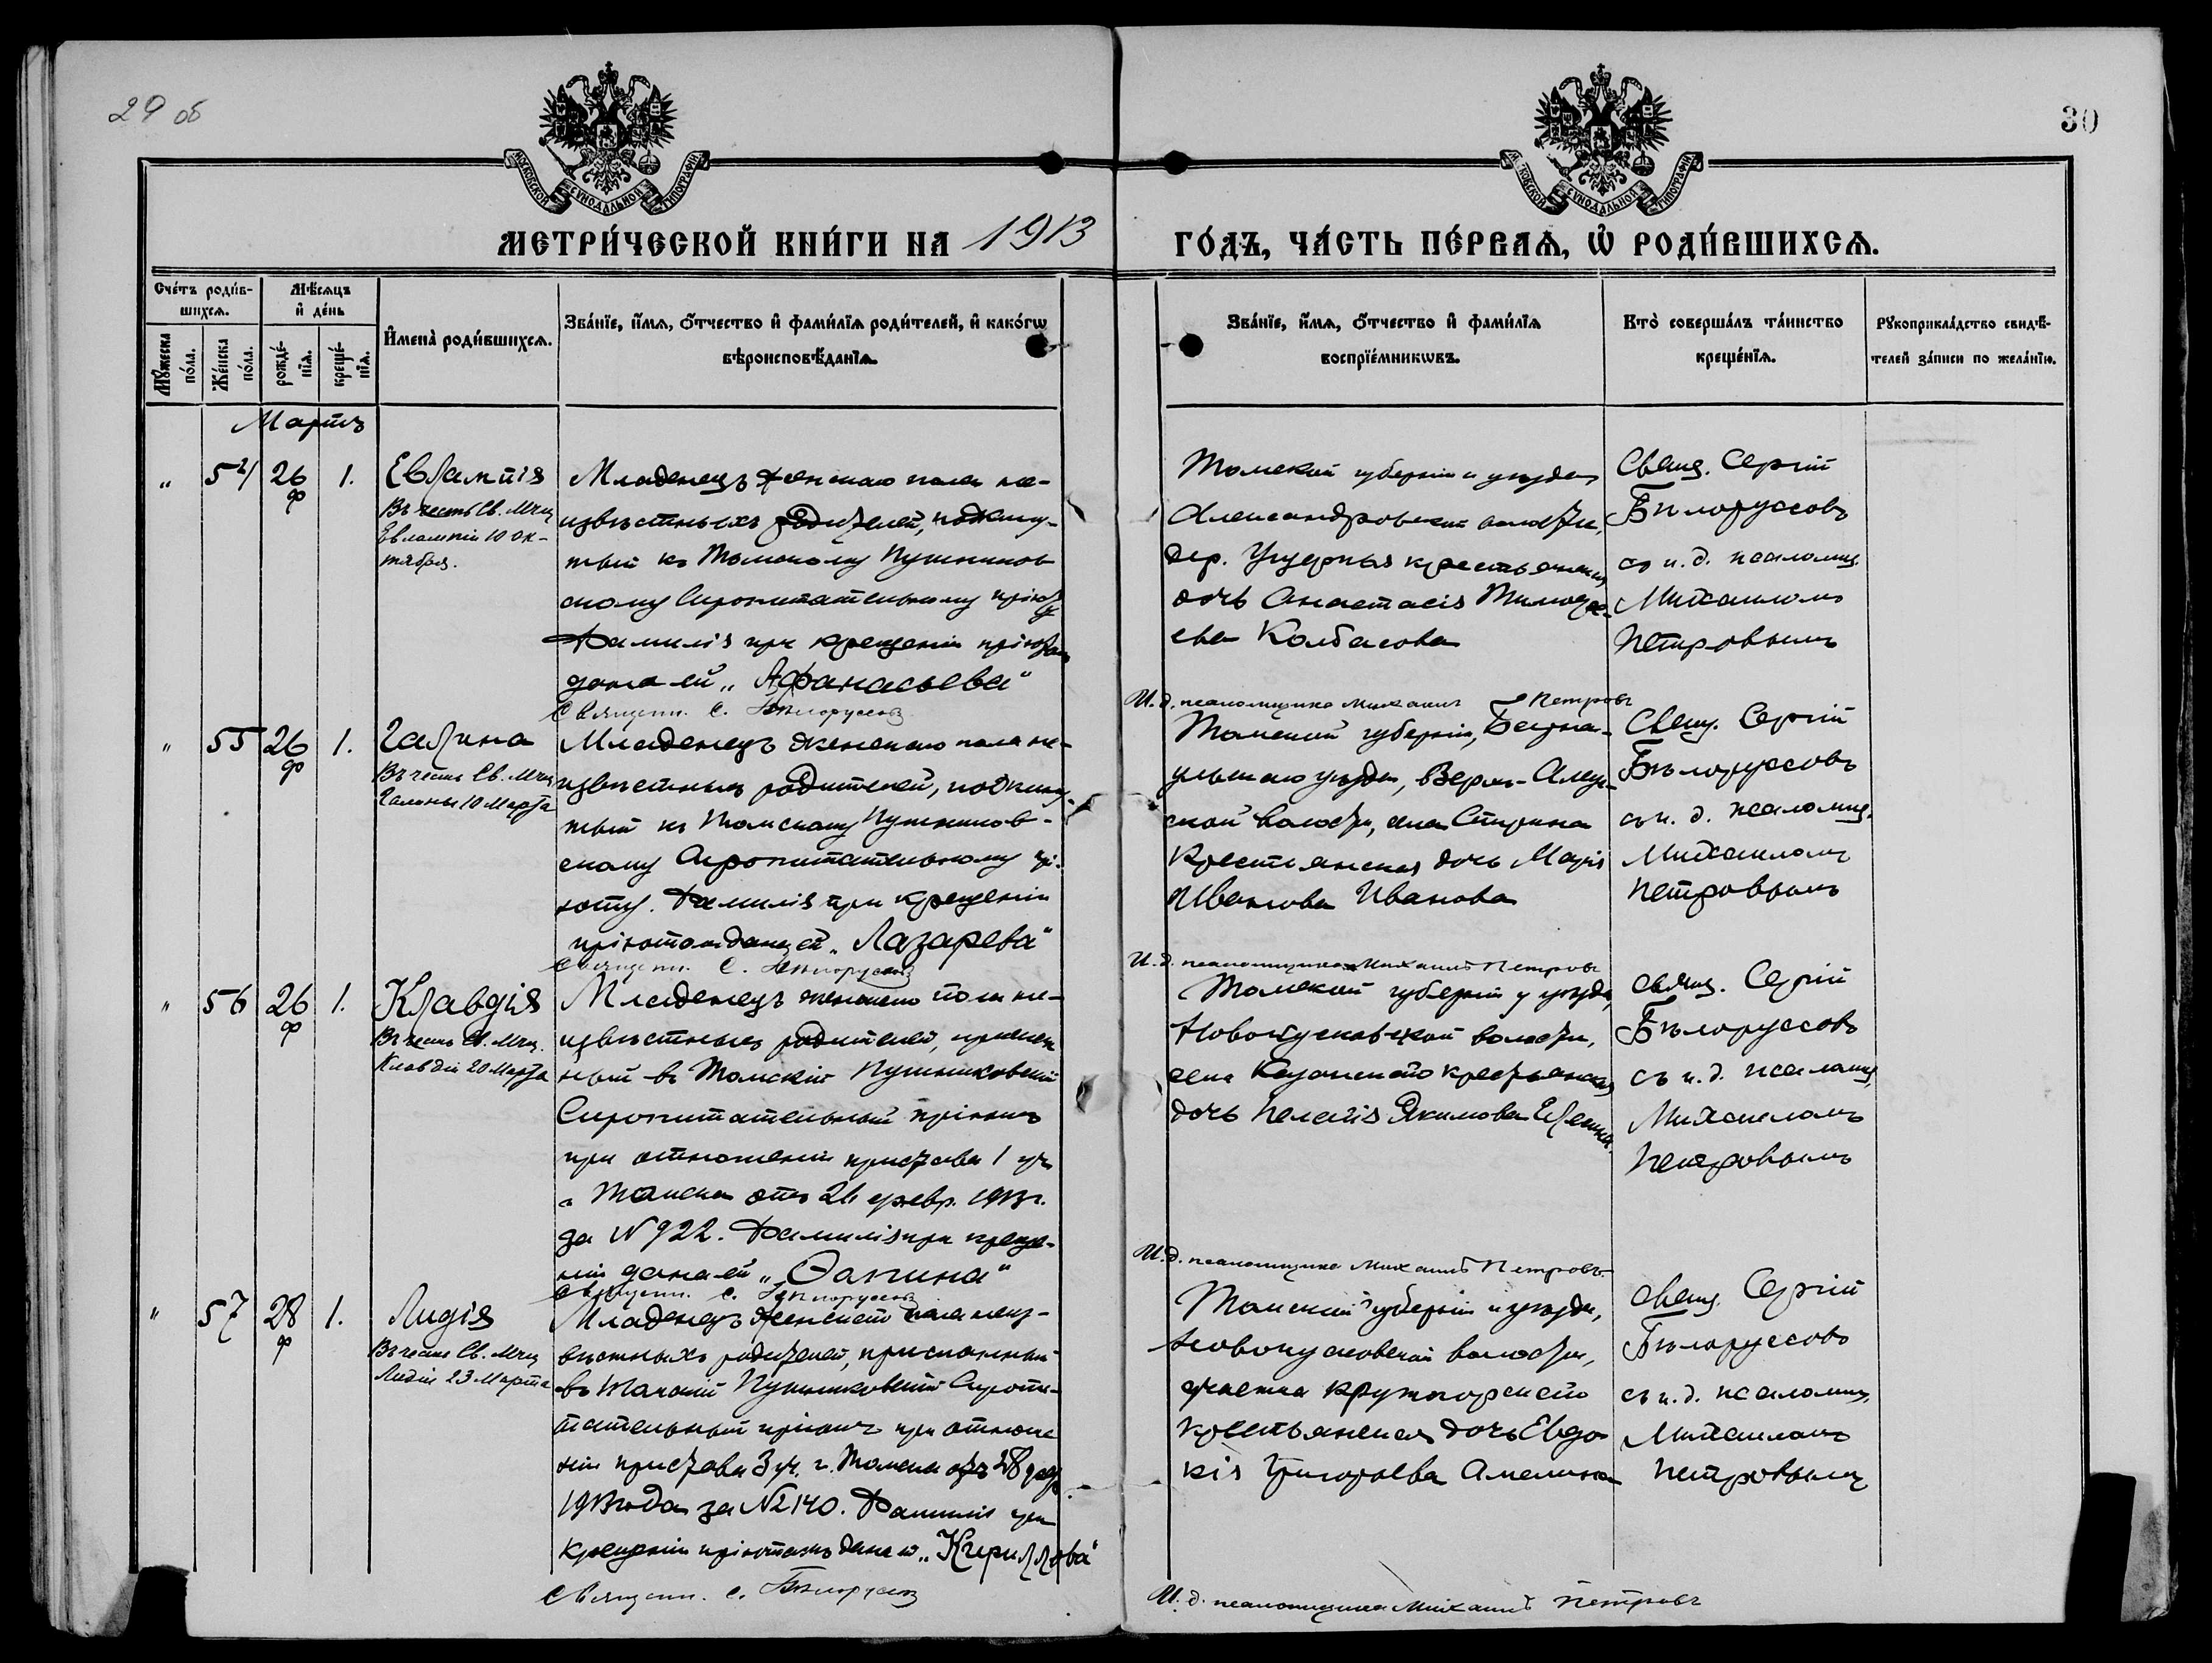 29 об
30
МОСКОВСКОЙ СѴНОДАЛЬНОЙ ТИПОГРАФІИ
МОСКОВСКОЙ СѴНОДАЛЬНОЙ ТИПОГРАФІИ
МЕТРИ́ЧЕСКОЙ КНИ́ГИ НА 1913
ГО́ДЪ, ЧА́СТЬ ПЕ́РВАѦ, Ѡ҆ РОДИ́ВШИХСѦ.
Сче́тъ роди́в-
шихсѧ.
Мꙋ́жеска по́ла.
Же́нска по́ла.
Мѣ́сѧцъ
и҆ де́нь
рожде́-
нїѧ.
креще́-
нїѧ.
И҆мена̀ роди́вшихсѧ.
Зва́нїе, и҆́мѧ, ѻ҆́тчество и҆ фами́лїѧ роди́телей, и҆ како́гѡ
вѣроисповѣ́данїѧ.
Зва́нїе, и҆́мѧ, ѻ҆́тчество и҆ фами́лїѧ
воспрїе́мникѡвъ.
Кто̀ соверша́лъ та́инство
креще́нїѧ.
Рꙋкоприкла́дство свидѣ́-
телей за́писи по жела́нїю.
Мартъ
" 54 26 ф 1.
Евлампія
Въ честь Св. Мчц
Евлампіи 10 Ок-
тября.
Младенецъ женскаго пола не-
извѣстныхъ родителей, подкину-
тый къ Томскому Пушников-
скому Сиропитательному пріюту
Фамилія при крещеніи пріютомъ
дана ей „Афанасьева"
Священн. С. Бѣлоруссовъ
Томской губерніи и уѣзда
Александровской волости,
дер. крестьянская
дочь Анастасія Тимофе-
ева Колбасова
И. д. псаломщика Михаилъ Петровъ
Свящ. Сергій
Бѣлоруссовъ
съ и. д. псаломщ.
Михаиломъ
Петровымъ
" 55 26 ф 1.
Галина
Въ честь Св. Мчц
Галины 10 Марта
Младенецъ женскаго пола не-
извѣстныхъ родителей, подкину-
тый къ Томскому Пушников-
скому Сиропитательному прі-
юту. Фамилія при крещеніи
пріютомъ дана ей „Лазарева"
Священн. С. Бѣлоруссовъ
Томской губерніи, Барна-
ульскаго уѣзда, Верхъ-Алеу-
ской волости, села
Крестьянская дочь Марія
Иванова Иванова
И. д. псаломщика Михаилъ Петровъ
Свящ. Сергій
Бѣлоруссовъ
съ и. д. псаломщ.
Михаиломъ
Петровымъ
" 56 26 ф 1.
Клавдія
Въ честь Св. Мчц.
Клавдіи 20 Марта
Младенецъ женскаго пола не-
извѣстныхъ родителей,
въ Томскій Пушниковскій
Сиропитательный пріютъ
при отношеніи пристава 1 уч.
г. Томска отъ 26 февр. 1913 г.
за № 922. Фамилія при креще-
ніи дана ей „Ѳапина"
Священн. С. Бѣлоруссовъ
Томской губерніи и уѣзда,
Новокусковской волости,
села Казанскаго крестьянская
дочь Пелагія Якимова
И. д. псаломщика Михаилъ Петровъ
Свящ. Сергій
Бѣлоруссовъ
съ и. д. псаломщ.
Михаиломъ
Петровымъ
" 57 28 ф 1.
Лидія
Въ честь Св. Мчц
Лидіи 23 Марта
Младенецъ женскаго пола неиз-
вѣстныхъ родителей, присланный
въ Томскій Пушниковскій Сиропи-
тательный пріютъ при отноше-
ніи пристава 3 уч. г. Томска отъ 28 февр.
1913 года за № 2140. Фамилія при
крещеніи пріютомъ дана ей „Кирillова"
Священн. С. Бѣлоруссовъ
Томской губерніи и уѣзда,
Новокусковской волости,
участка Крутогорскаго
крестьянская дочь Евдо-
кія Григорьева Амелина
И. д. псаломщика Михаилъ Петровъ
Свящ. Сергій
Бѣлоруссовъ
съ и. д. псаломщ.
Михаиломъ
Петровымъ